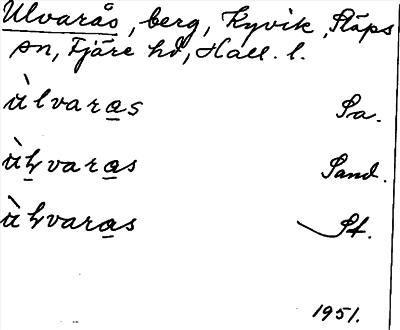 Ulvarås, berg, Kyvik, Släps
sn, Fjäre hd, Hall. l.
ùlvara̲s Sa.
ùl̲vara̲s Sand.
ùlvara̲s St.
1951.